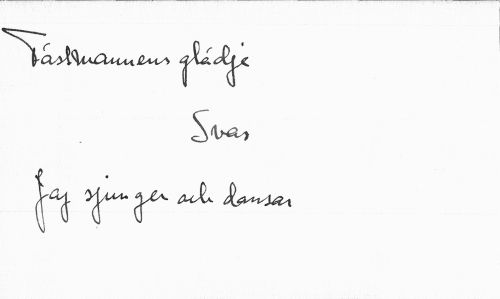 Tåstmannens glädje
Svar
Jag sjunger och dansar